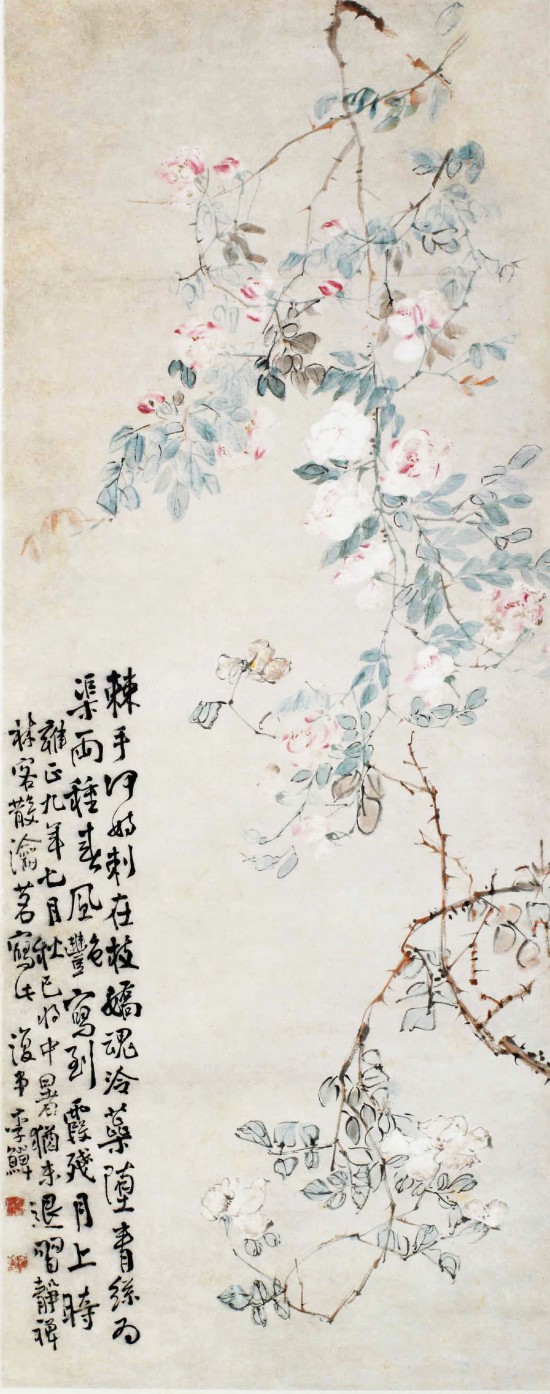 棘手何妨刺在枝嬌魂冷蘂墮青絲為
渠兩種春風艷寫到霞殘月上時
雍正九年七月秋已將中暑猶未退習靜禅
林客散瀹茗寫此 復堂李鱓